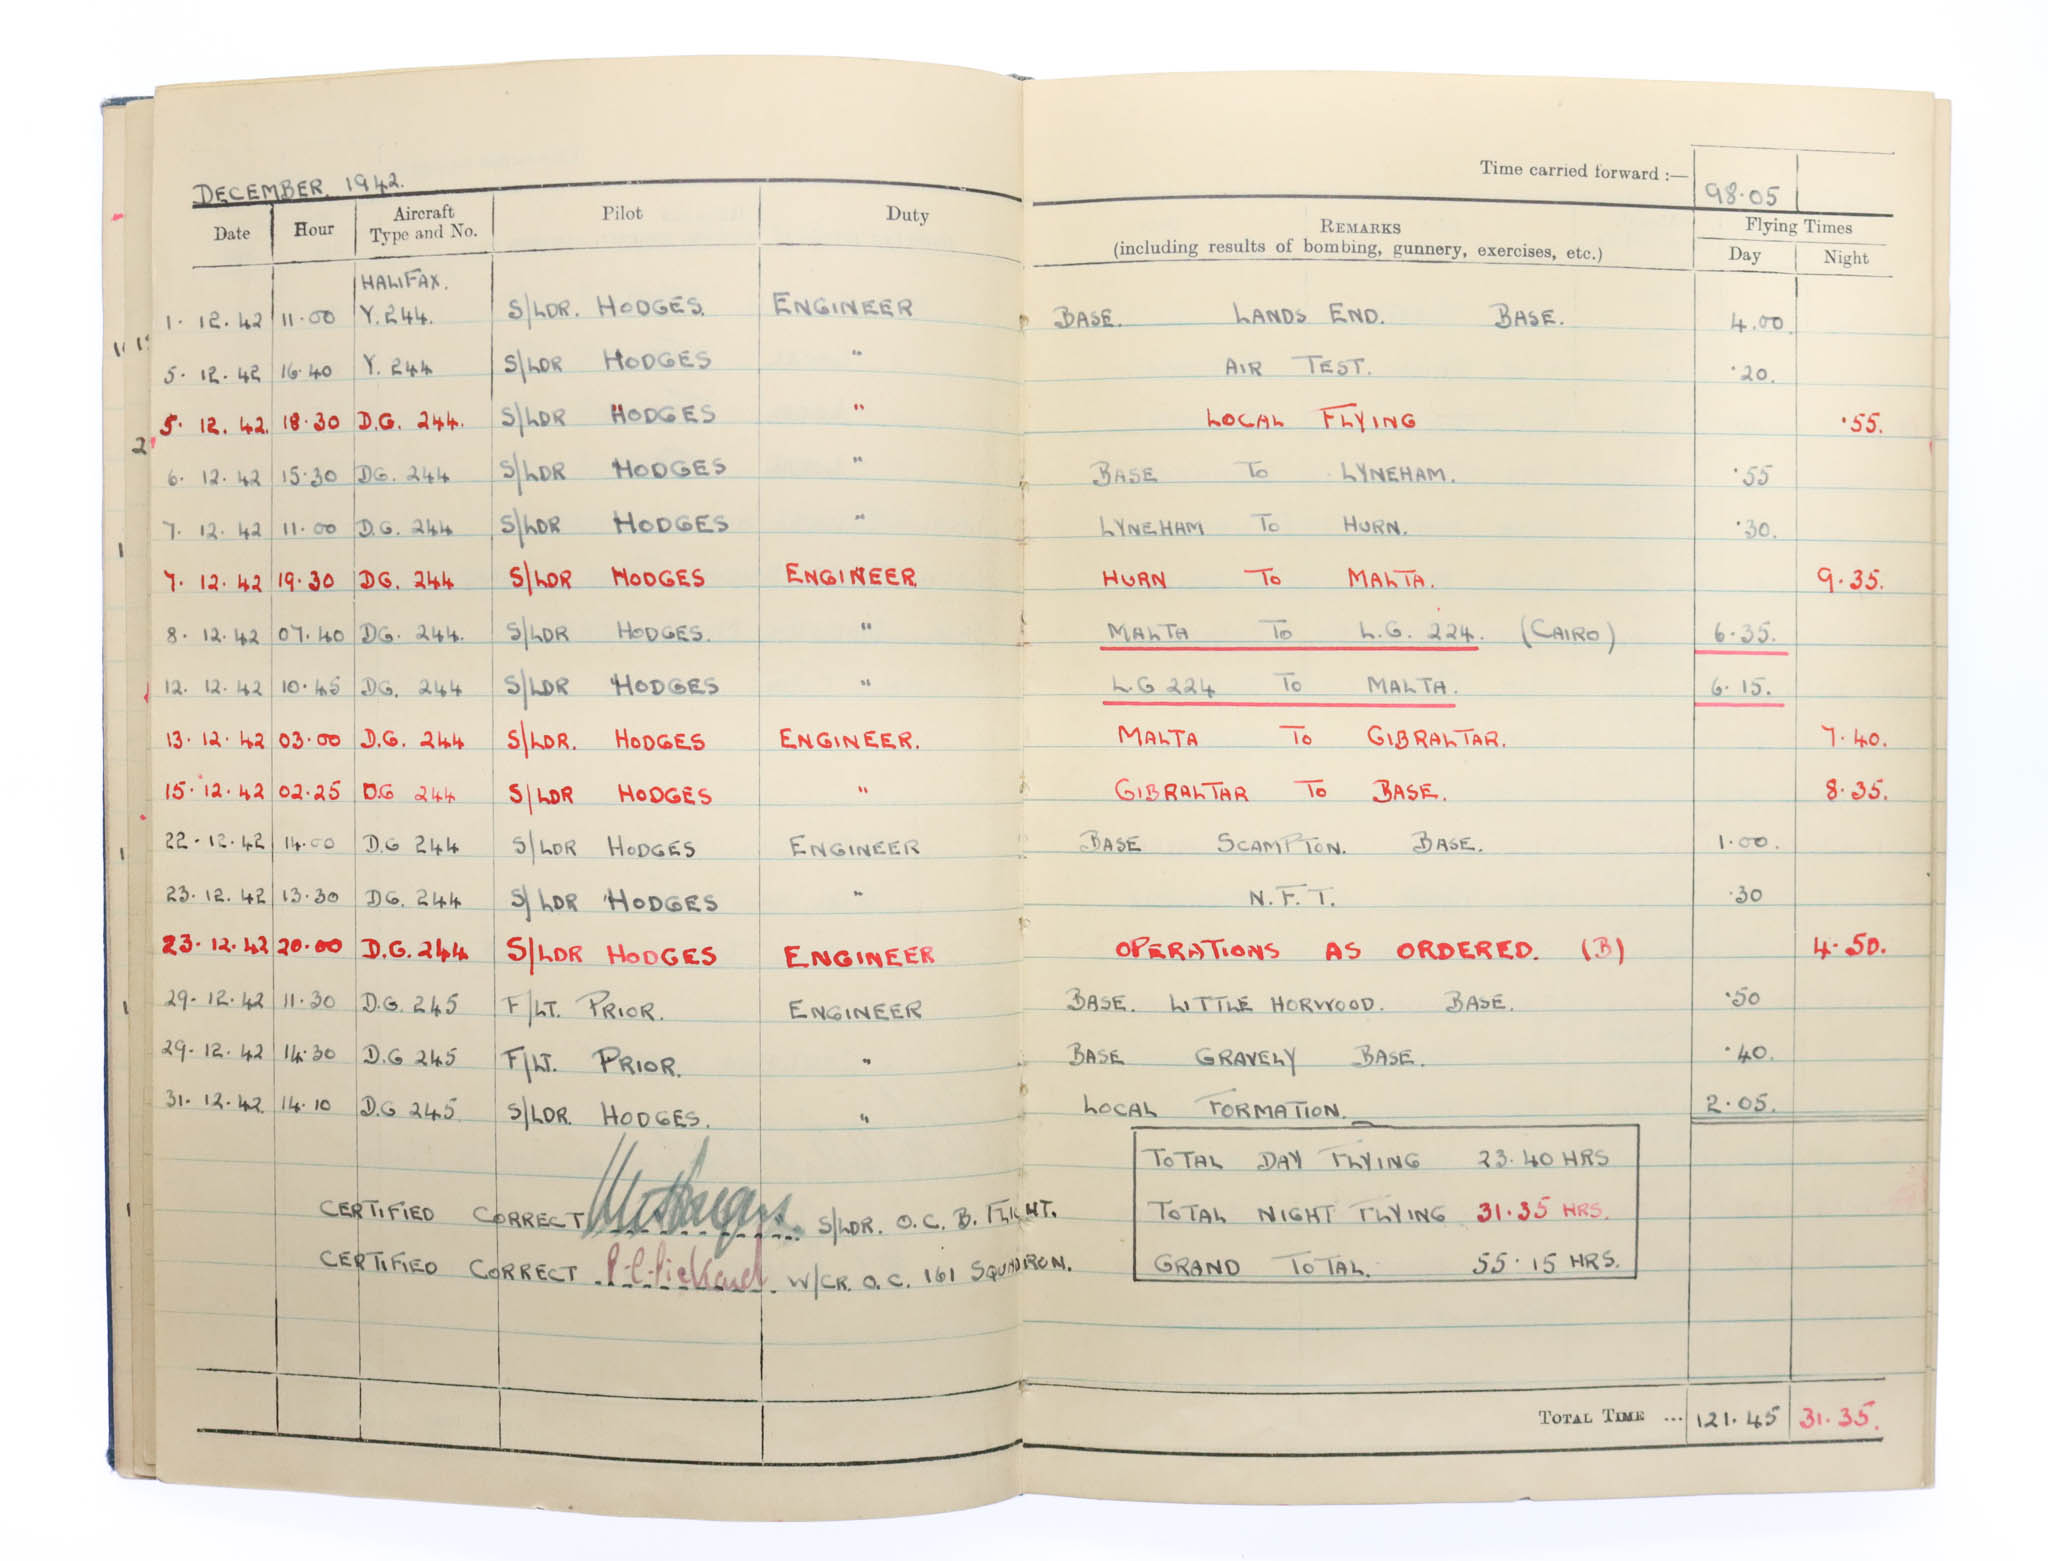 DECEMBER. 1942.
Time carried forward :— 98.05
Date Hour Aircraft Type and No. Pilot Duty REMARKS (including results of bombing, gunnery, exercises, etc.) Flying Times Day Night
HALIFAX.
1. 12. 42 11.00 Y. 244. S/LDR. HODGES. ENGINEER BASE. LANDS END. BASE. 4.00
5. 12. 42 16.40 Y. 244 S/LDR HODGES " AIR TEST. .20.
5. 12. 42. 18.30 D.G. 244. S/LDR HODGES " LOCAL FLYING .55.
6. 12. 42 15.30 DG. 244 S/LDR HODGES " BASE TO LYNEHAM. .55
7. 12. 42 11.00 D.G. 244 S/LDR HODGES " LYNEHAM TO HURN. .30.
7. 12. 42 19.30 DG. 244 S/LDR HODGES ENGINEER. HURN TO MALTA. 9.35.
8. 12. 42 07.40 DG. 244. S/LDR HODGES. " MALTA TO L.G. 224. (CAIRO) 6.35.
12. 12. 42 10.45 DG. 244 S/LDR HODGES " L.G 224 TO MALTA. 6.15.
13. 12. 42 03.00 D.G. 244 S/LDR. HODGES ENGINEER. MALTA TO GIBRALTAR. 7.40.
15. 12. 42 02.25 D.G 244 S/LDR HODGES " GIBRALTAR TO BASE. 8.35.
22. 12. 42 14.00 D.G 244 S/LDR HODGES ENGINEER BASE SCAMPTON. BASE. 1.00.
23. 12. 42 13.30 DG. 244 S/LDR HODGES " N.F.T. .30
23. 12. 42 20.00 D.G. 244 S/LDR HODGES ENGINEER OPERATIONS AS ORDERED. (B) 4.50.
29. 12. 42 11.30 D.G. 245 F/LT. PRIOR. ENGINEER BASE. LITTLE HORWOOD. BASE. .50
29. 12. 42 14.30 D.G 245 F/LT. PRIOR. " BASE GRAVELY BASE. .40.
31. 12. 42. 14.10 D.G 245. S/LDR. HODGES. " LOCAL FORMATION. 2.05.
TOTAL DAY FLYING 23.40 HRS
CERTIFIED CORRECT S/LDR. O.C. B. FLIGHT. TOTAL NIGHT FLYING 31.35 HRS.
CERTIFIED CORRECT P.C. Pickard W/CR. O.C. 161 SQUADRON. GRAND TOTAL. 55.15 HRS.
TOTAL TIME ... 121.45 31.35.